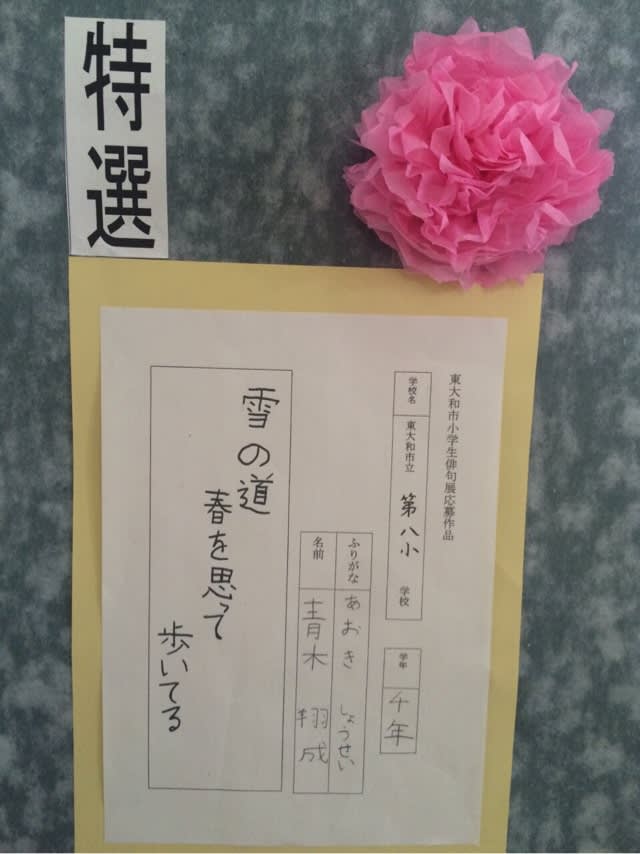 特選
東大和市小学生俳句展応募作品
学校名 東大和市立 第八小 学校
学年 4年
ふりがな あおき しょうせい
名前 青木 翔成
雪の道
春を思って
歩いてる